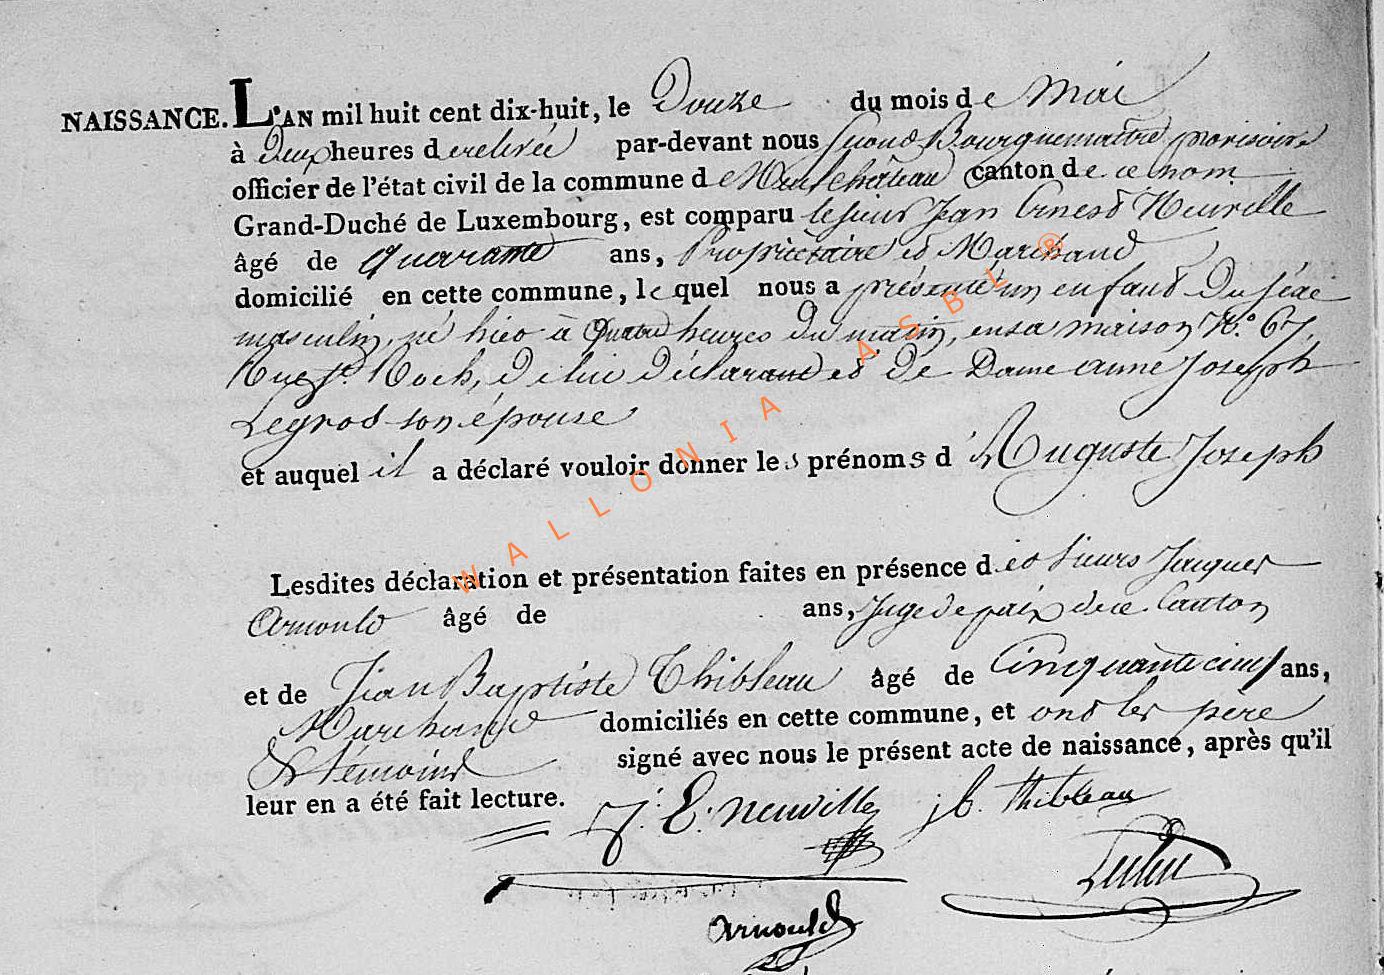 NAISSANCE. L'AN mil huit cent dix-huit, le Douze du mois de Mai
à Deux heures de relevée par-devant nous second Bourguemaitre provisoire
officier de l'état civil de la commune de Neufchâteau canton de ce nom
Grand-Duché de Luxembourg, est comparu le sieur Jean Ernest Neuville
âgé de quarante ans, Propriétaire et Marchand
domicilié en cette commune, le quel nous a présenté un enfant du séxe
masculin, né hier à Quatre heures du matin, en sa maison N.º 67,
Rue St. Roch, de lui déclarant et de Dame anne Joseph
Legros son épouse
et auquel il a déclaré vouloir donner les prénoms d'Auguste Joseph
Lesdites déclaration et présentation faites en présence des Sieurs Jacques
Arnould âgé de ans, Juge de paix de ce Canton
et de Jean Baptiste Thibleau âgé de Cinquante cinq ans,
Marchand domiciliés en cette commune, et ont les père
& témoins signé avec nous le présent acte de naissance, après qu'il
leur en a été fait lecture.
J. E. Neuville jb. thibleau
arnould
WALLONIA ASBL ®